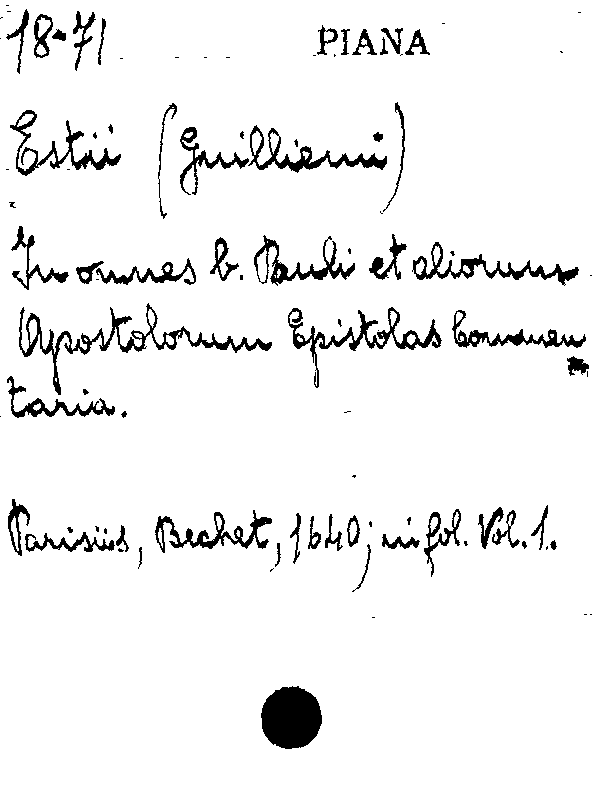 18-71 PIANA
Estii (Guillielmi)
In omnes b. Pauli et aliorum
Apostolorum Epistolas Commen
taria.
Parisiis, Bechet, 1640; in fol. Vol. 1.